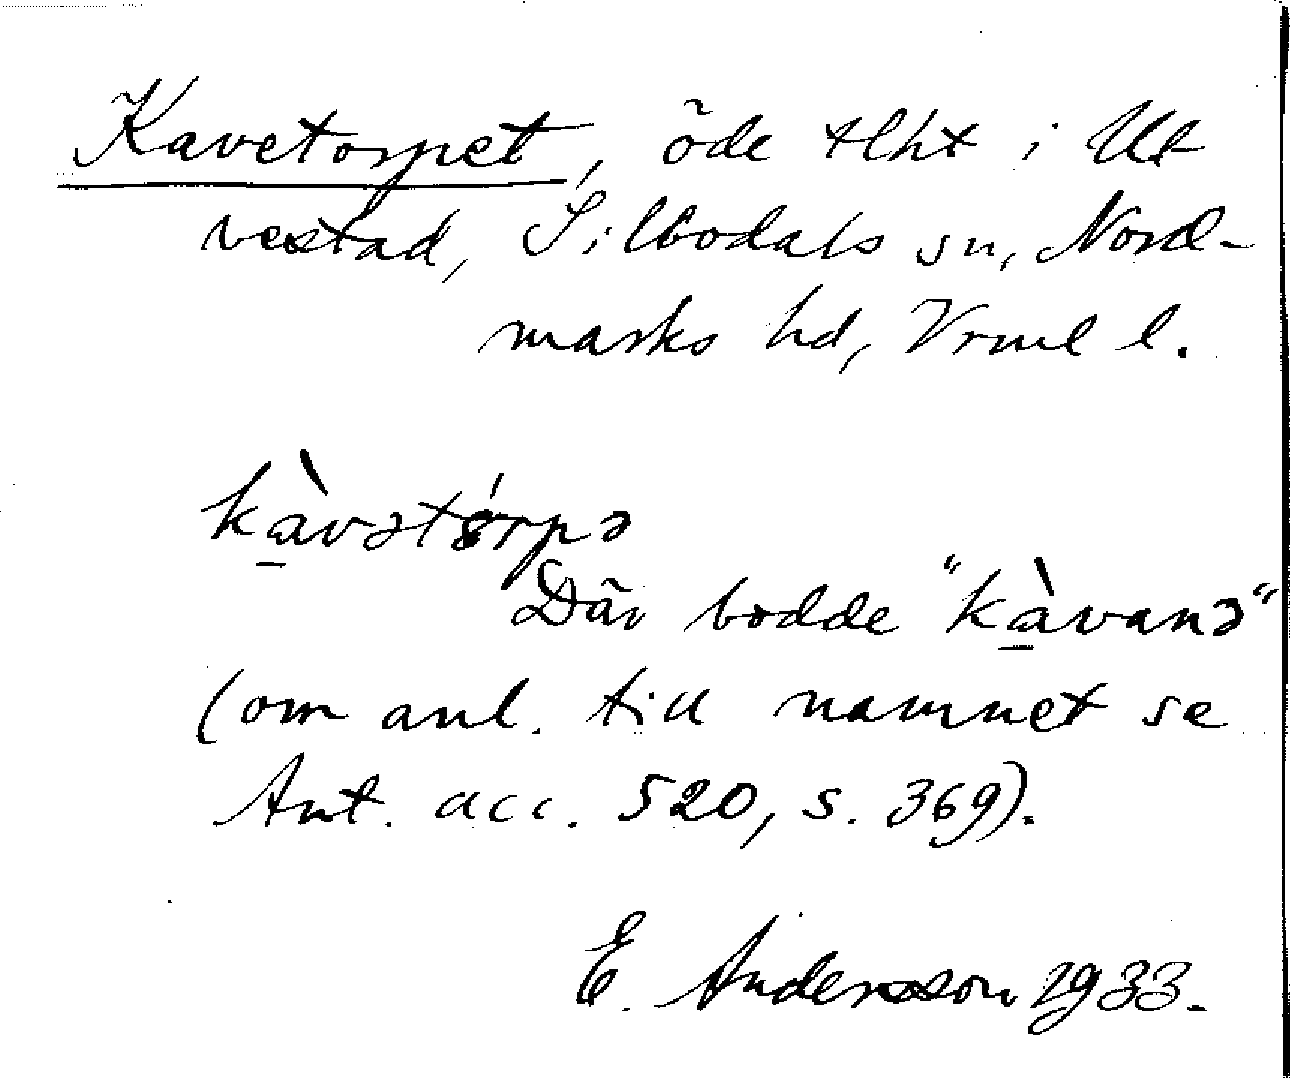 Kavetorpet, öde tlht i Ut
vestad, Silbodals sn, Nord-
marks hd, Vrml l.
kàvətórpə
Där bodde "kàvanə"
(om anl. till namnet se
Ant. acc. 520, s. 369).
E. Andersson 1933.